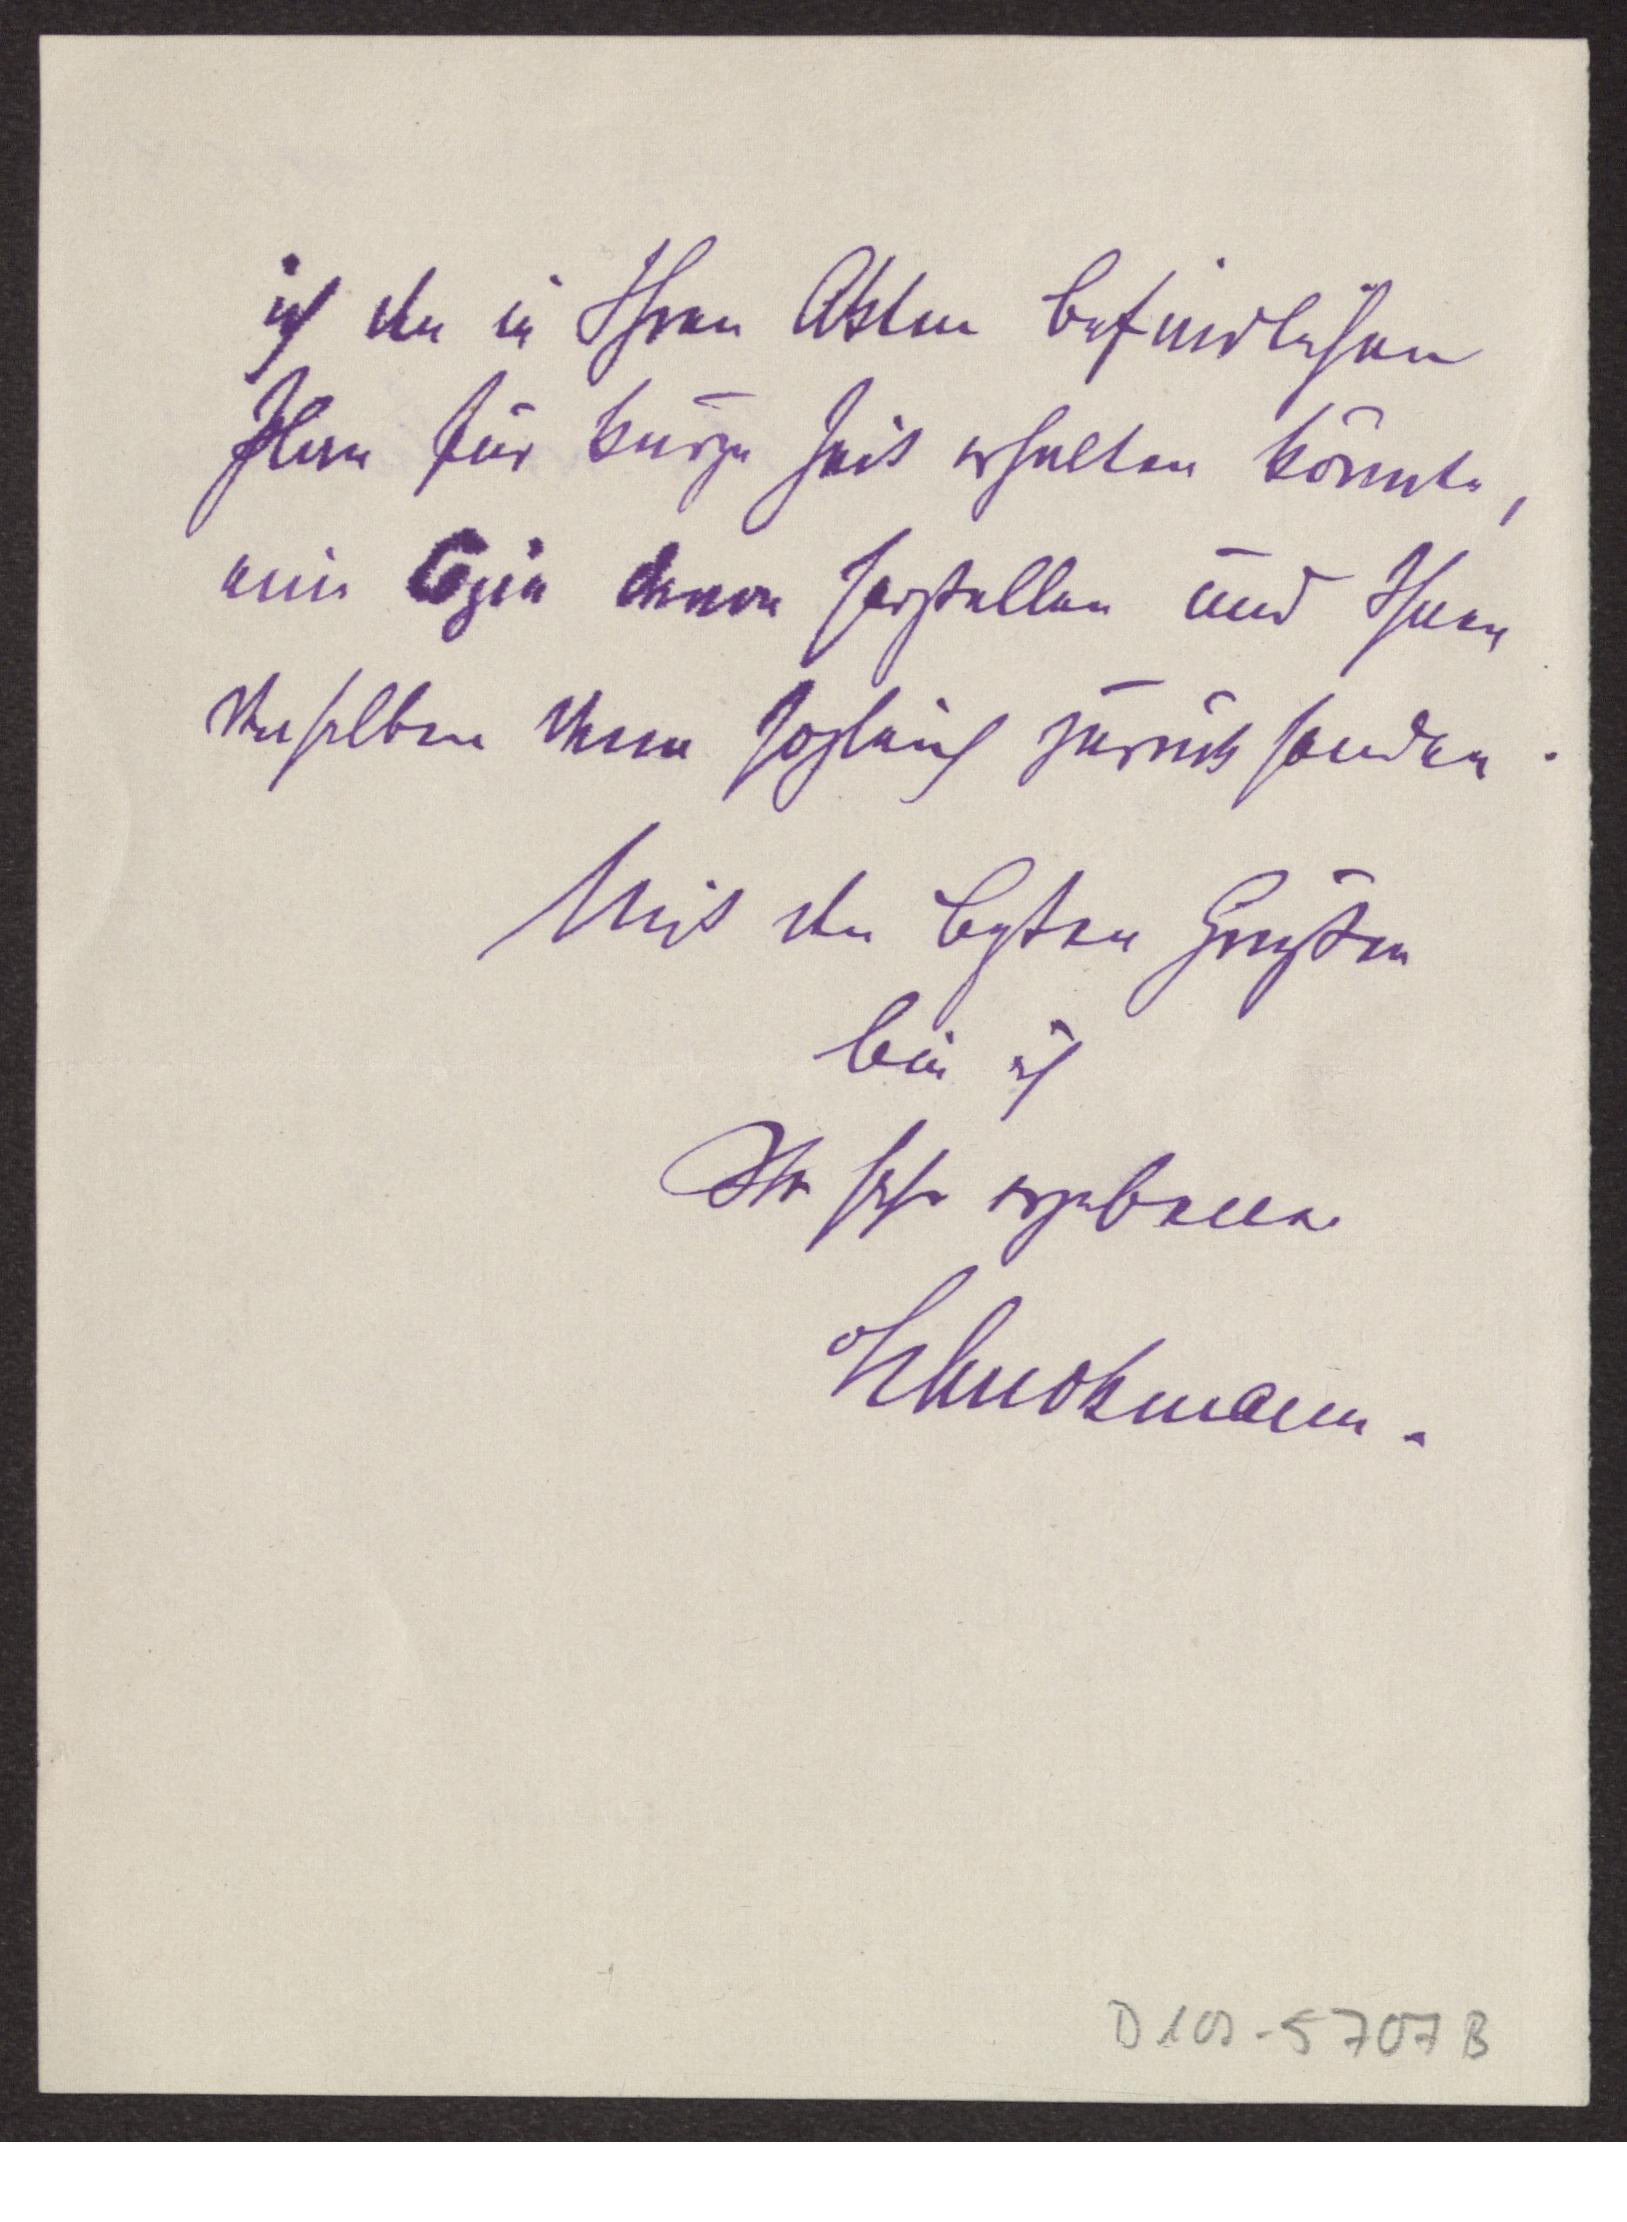 ich den in Ihren Akten befindlichen
Plan für kurze Zeit erhalten könnte,
eine Copie davon herstellen und Ihnen
denselben dann sogleich zurücksenden.
Mit den besten Grüßen
bin ich
Ihr sehr ergebener
Schuckmann.
D 107-5707 B